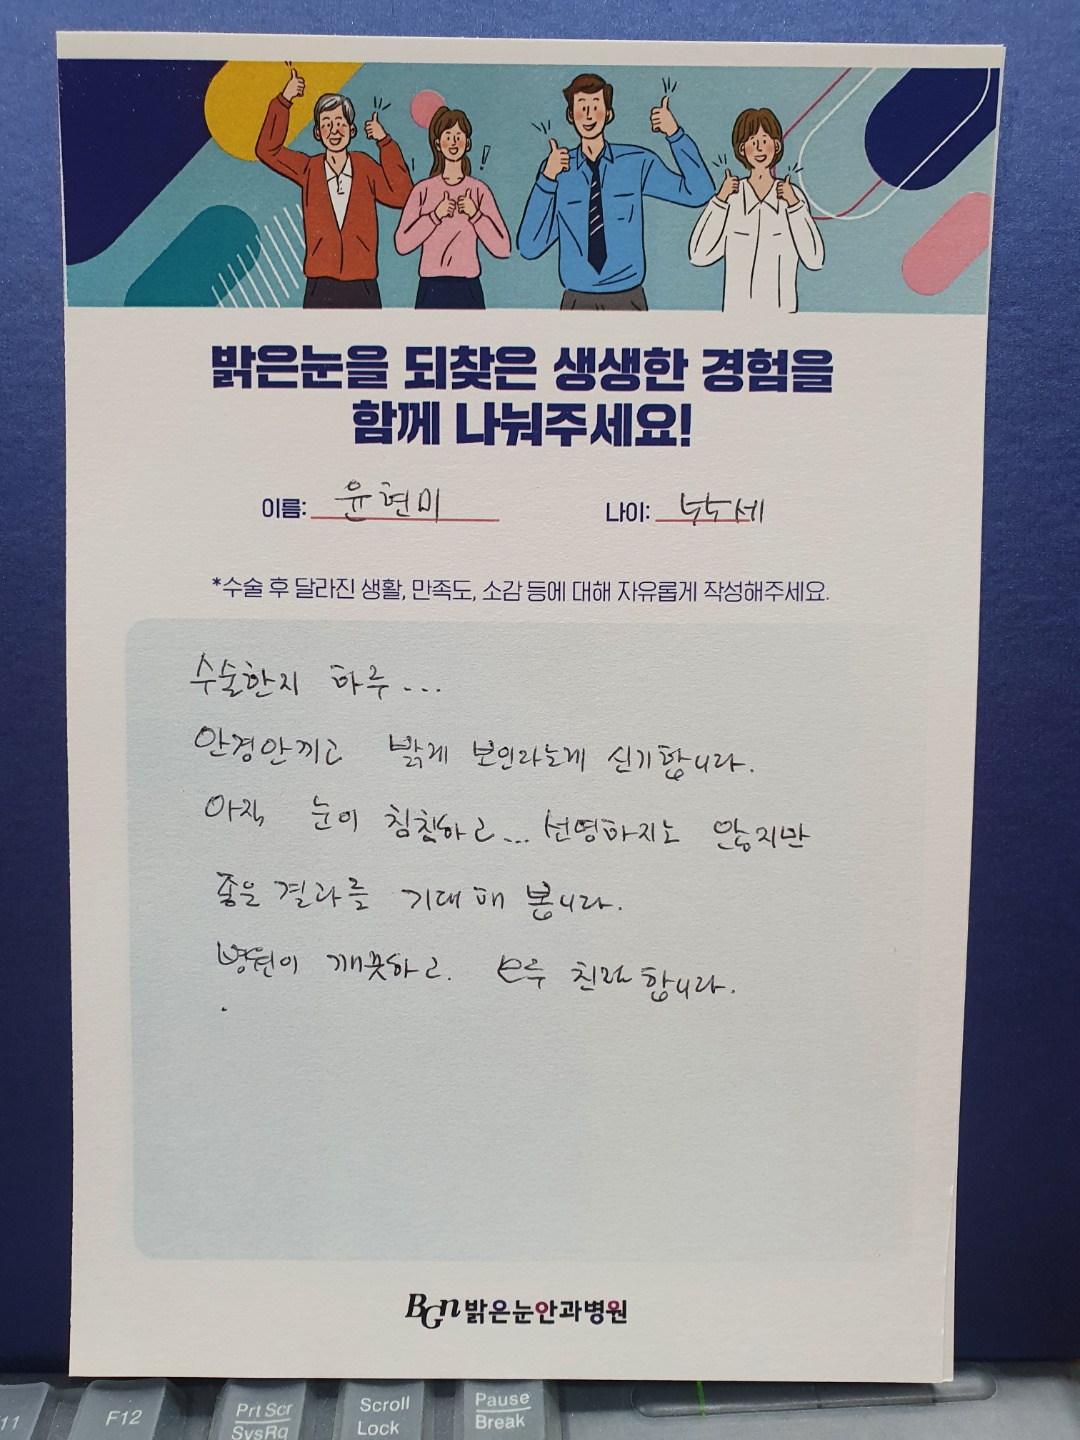 밝은눈을 되찾은 생생한 경험을
함께 나눠주세요!
이름: 윤현미 나이: 55세
*수술 후 달라진 생활, 만족도, 소감 등에 대해 자유롭게 작성해주세요.
수술한지 하루...
안경안끼고 밝게 보인라는게 신기합니다.
아직 눈이 침침하고... 선명하지는 않지만
좋은 결과를 기대해 봅니다.
병원이 깨끗하고. 모두 친절합니다.
BGn밝은눈안과병원
11
F12
Prt Scr
SysRq
Scroll
Lock
Pause
Break